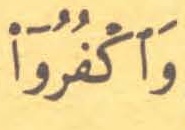 وَٱكْفُرُوٓا۟